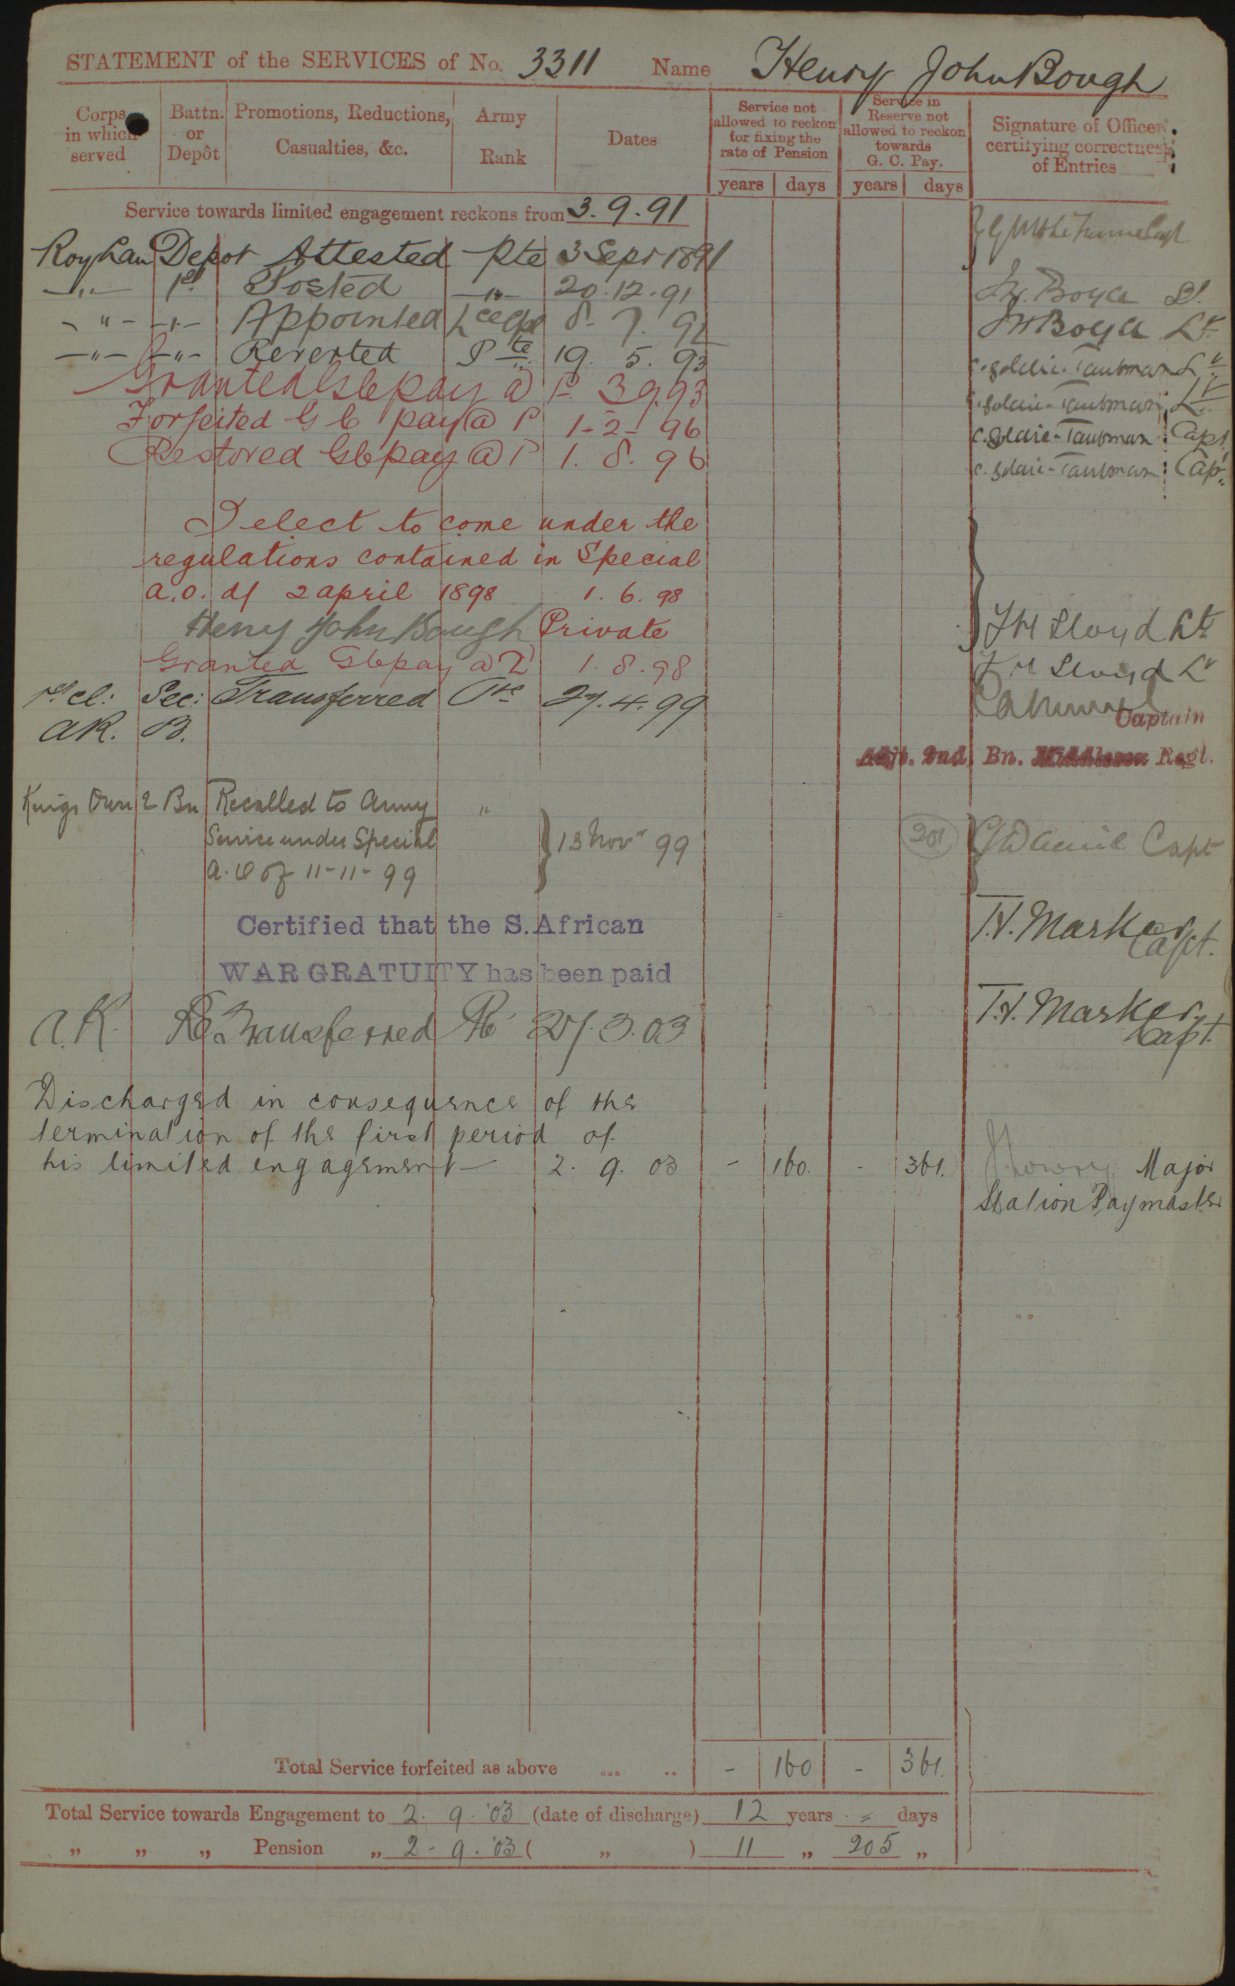 STATEMENT of the SERVICES of No. 3311 Name Henry John Bough
Corps in which served
Battn. or Depôt
Promotions, Reductions, Casualties, &c.
Army Rank
Dates
Service not allowed to reckon for fixing the rate of Pension
years days
Service in Reserve not allowed to reckon towards G. C. Pay.
years days
Signature of Officer certifying correctness of Entries
Service towards limited engagement reckons from 3.9.91
Roy Lan Depot Attested Pte 3 Sept 1891
-"- 1st Posted -"- 20.12.91 Boyce Lt.
-"- -"- Appointed Lce Cpl 8. 7. 92 Boyce Lt.
-"- -"- Reverted Pte 19. 5. 93 C. Goldie-Taubman Lt.
Granted G C pay @ 1d 3.9.93 C. Goldie-Taubman Lt.
Forfeited G C pay @ 1d 1-2-96 C. Goldie-Taubman Capt
Restored G C pay @ 1d 1. 8. 96 C. Goldie-Taubman Capt.
I elect to come under the
regulations contained in Special
A.O. of 2 april 1898 1. 6. 98
Henry John Bough Private Lloyd Lt
Granted G C pay @ 2d 1. 8. 98 Lloyd Lt
1st Cl: Sec: Transferred Pte 27.4.99
A R. B. Captain
Adjt. 2nd Bn. Middlesex Regt.
Kings Own 2 Bn Recalled to Army "
Service under Special } 13 Nov 99 201 Capt
A.O of 11-11-99
Certified that the S. African T.H. Marker Capt.
WAR GRATUITY has been paid
A.R. Re Transferred Pte 27.3.03 T.H. Marker Capt.
Discharged in consequence of the
termination of the first period of
his limited engagement - 2. 9. 03 - 160. - 361. Major
Station Paymaster
Total Service forfeited as above ... .. - 160 - 361.
Total Service towards Engagement to 2. 9. '03 (date of discharge) 12 years - = days
" " " Pension " 2-9.'03 ( " ) 11 " 205 "